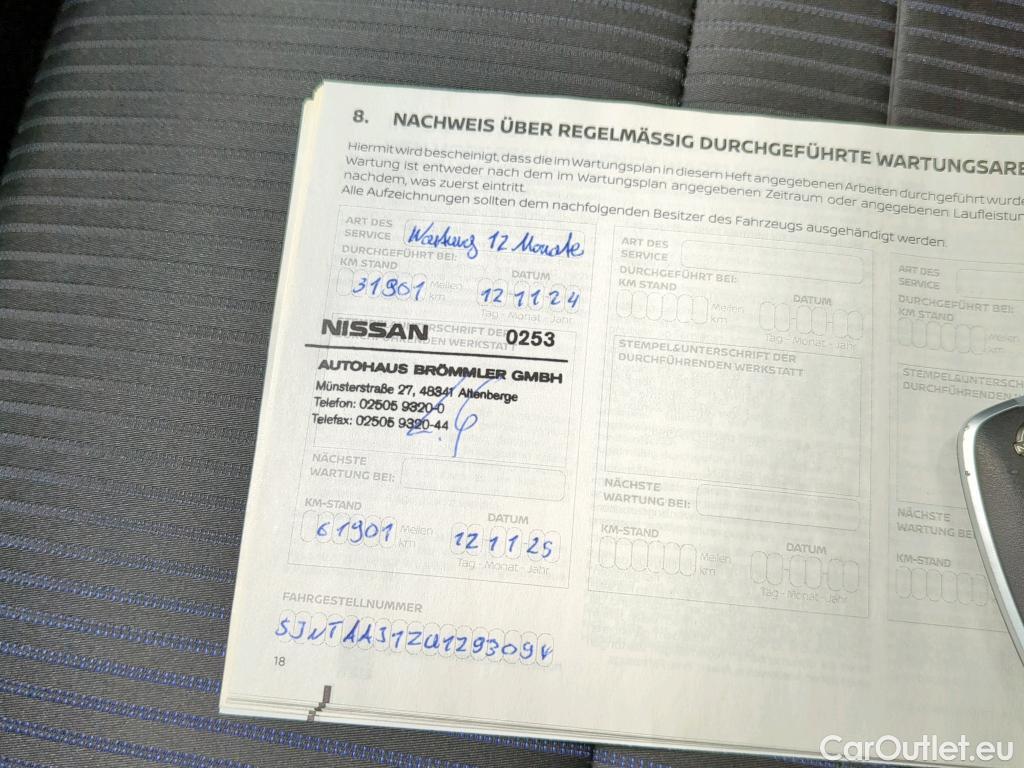 8. NACHWEIS ÜBER REGELMÄSSIG DURCHGEFÜHRTE WARTUNGSARE
Hiermit wird bescheinigt, dass die im Wartungsplan in diesem Heft angegebenen Arbeiten durchgeführt wurde
Wartung ist entweder nach dem im Wartungsplan angegebenen Zeitraum oder angegebenen Laufleistun
nachdem, was zuerst eintritt.
Alle Aufzeichnungen sollten dem nachfolgenden Besitzer des Fahrzeugs ausgehändigt werden.
ART DES
SERVICE Wartung 12 Monate
DURCHGEFÜHRT BEI:
KM STAND DATUM
31901 Meilen km 12 11 24
Tag - Monat - Jahr
NISSAN 0253
AUTOHAUS BRÖMMLER GMBH
Münsterstraße 27, 48341 Altenberge
Telefon: 02505 9320-0
Telefax: 02505 9320-44
NÄCHSTE
WARTUNG BEI:
KM-STAND DATUM
61901 Meilen km 12 11 25
Tag - Monat - Jahr
FAHRGESTELLNUMMER
18
ART DES
SERVICE
DURCHGEFÜHRT BEI:
KM STAND DATUM
Meilen km
Tag - Monat - Jahr
STEMPEL&UNTERSCHRIFT DER
DURCHFÜHRENDEN WERKSTATT
NÄCHSTE
WARTUNG BEI:
KM-STAND DATUM
Meilen km
Tag - Monat - Jahr
ART DES
SERVICE
DURCHGEFÜHRT BEI:
KM STAND
Meilen
STEMPEL&UNTERSCH
DURCHFÜHRENDEN
NÄCHSTE
WARTUNG BEI
KM-STAND
CarOutlet.eu